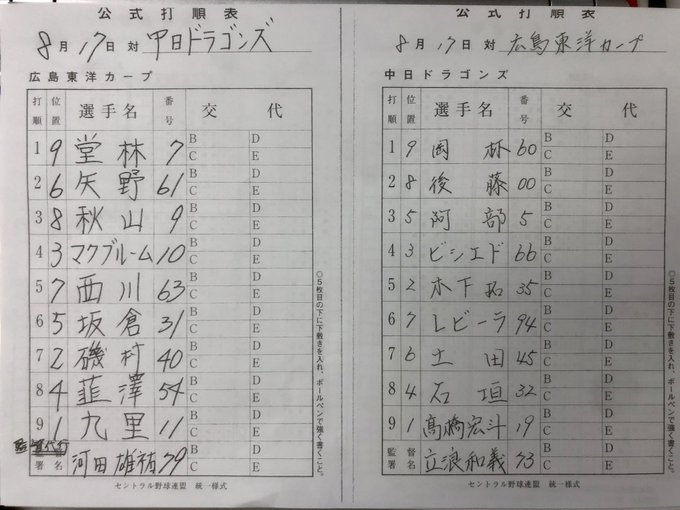 公式打順表
8月17日 対 中日ドラゴンズ
広島東洋カープ
打順 位置 選手名 番号 交代
1 9 堂林 7 B D C E
2 6 矢野 61 B D C E
3 8 秋山 9 B D C E
4 3 マクブルーム 10 B D C E
5 7 西川 63 B D C E
6 5 坂倉 31 B D C E
7 2 磯村 40 B D C E
8 4 韮澤 54 B D C E
9 1 九里 11 B D C E
監督代行
署名 河田雄祐 79 B D C E
◎5枚目の下に下敷きを入れ、ボールペンで強く書くこと。
セントラル野球連盟 統一様式
公式打順表
8月17日 対 広島東洋カープ
中日ドラゴンズ
打順 位置 選手名 番号 交代
1 9 岡林 60 B D C E
2 8 後藤 00 B D C E
3 5 阿部 5 B D C E
4 3 ビシエド 66 B D C E
5 2 木下拓 35 B D C E
6 7 レビーラ 94 B D C E
7 6 土田 45 B D C E
8 4 石垣 32 B D C E
9 1 髙橋宏斗 19 B D C E
監督署名 立浪和義 73 B D C E
◎5枚目の下に下敷きを入れ、ボールペンで強く書くこと。
セントラル野球連盟 統一様式